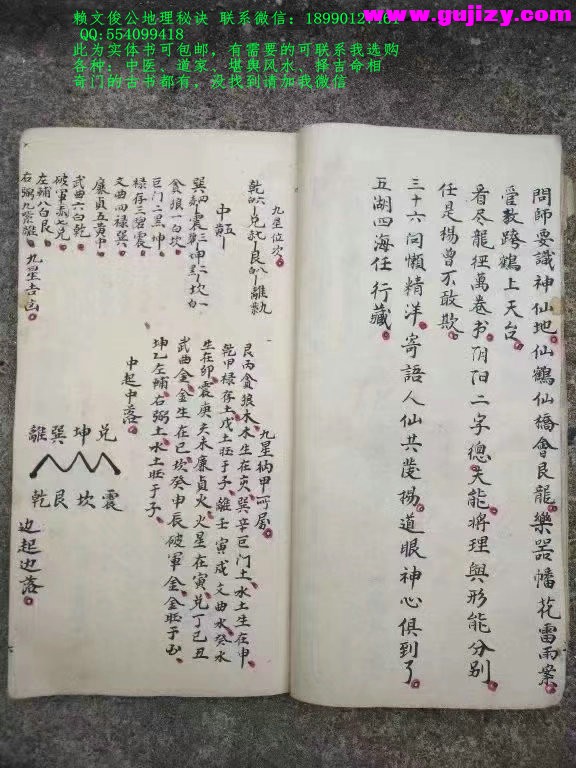 赖文俊公地理秘诀 联系微信：
www.gujizy.com
QQ:554099418
此为实体书可包邮，有需要的可联系我选购
各种：中医、道家、堪舆风水、择吉命相
奇门的古书都有，没找到请加我微信
問師要識神仙地仙鶴仙橋會艮龍樂器幡花雷雨案
受教跨鶴上天台
看尽龍経萬卷书阴阳二字總失能將理與形能分别
任是楊曾不敢欺
三十六问懒精洋寄語人仙共蹬揚道眼神心俱到了
五湖四海任行藏
九星位次
乾六 兑七 艮八 離九
中五
巽四 震三 坤二 坎一
貪狼一白坎
巨门二黑坤
禄存三碧震
文曲四禄巽
廉貞五黄中
武曲六白乾
破軍七赤兑
左輔八白艮
右弼九紫離 九星吉凶
九星納甲所屬
艮丙貪狼木木生在亥巽辛巨门土水土生在申
乾甲禄存土戊土旺于子離壬寅戌文曲水癸水
生在卯震庚亥未廉貞火火星在寅兑丁己丑
武曲金金生在巳坎癸申辰破軍金金旺于酉
坤乙左輔右弼土水土旺于子
中起中落
離巽坤兑
乾艮坎震
边起边落